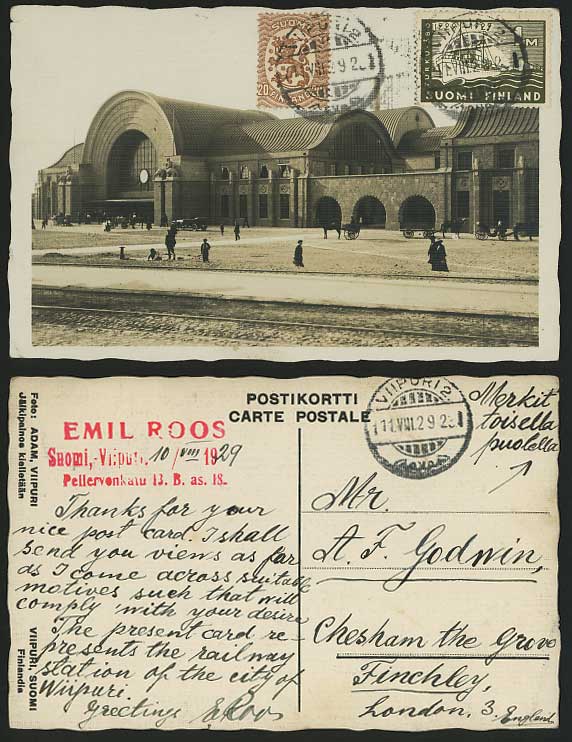 SUOMI
20
VIIPURI 2
VIIPURI 2
1229 1929
TURKU·ÅBO
1 M
SUOMI FINLAND
POSTIKORTTI
CARTE POSTALE
VIIPURI 2
11.VIII.29
Merkit
toisella
puolella
EMIL ROOS
Suomi, Viipuri, 10/VIII 1929
Pellervonkatu 13. B. as. 18.
Thanks for your
nice post card. I shall
send you views as far
as I come across suitable
motives such that will
comply with your desire
The present card re-
presents the railway
station of the city of
Wiipuri.
Greetings ERoos
Mr.
A. F. Godwin,
Chesham the Grove
Finchley,
London, 3.
England
Foto: ADAM, VIIPURI
Jälkipainos kielletään
VIIPURI, SUOMI
Finlandia